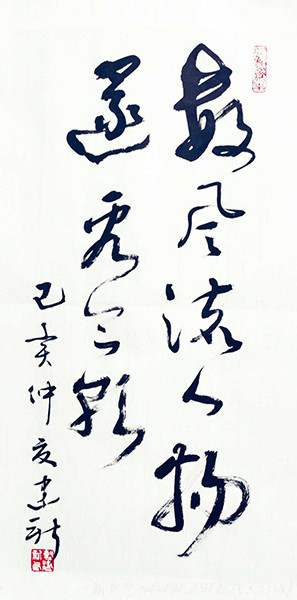 數风流人物
還看今朝
己亥仲夏